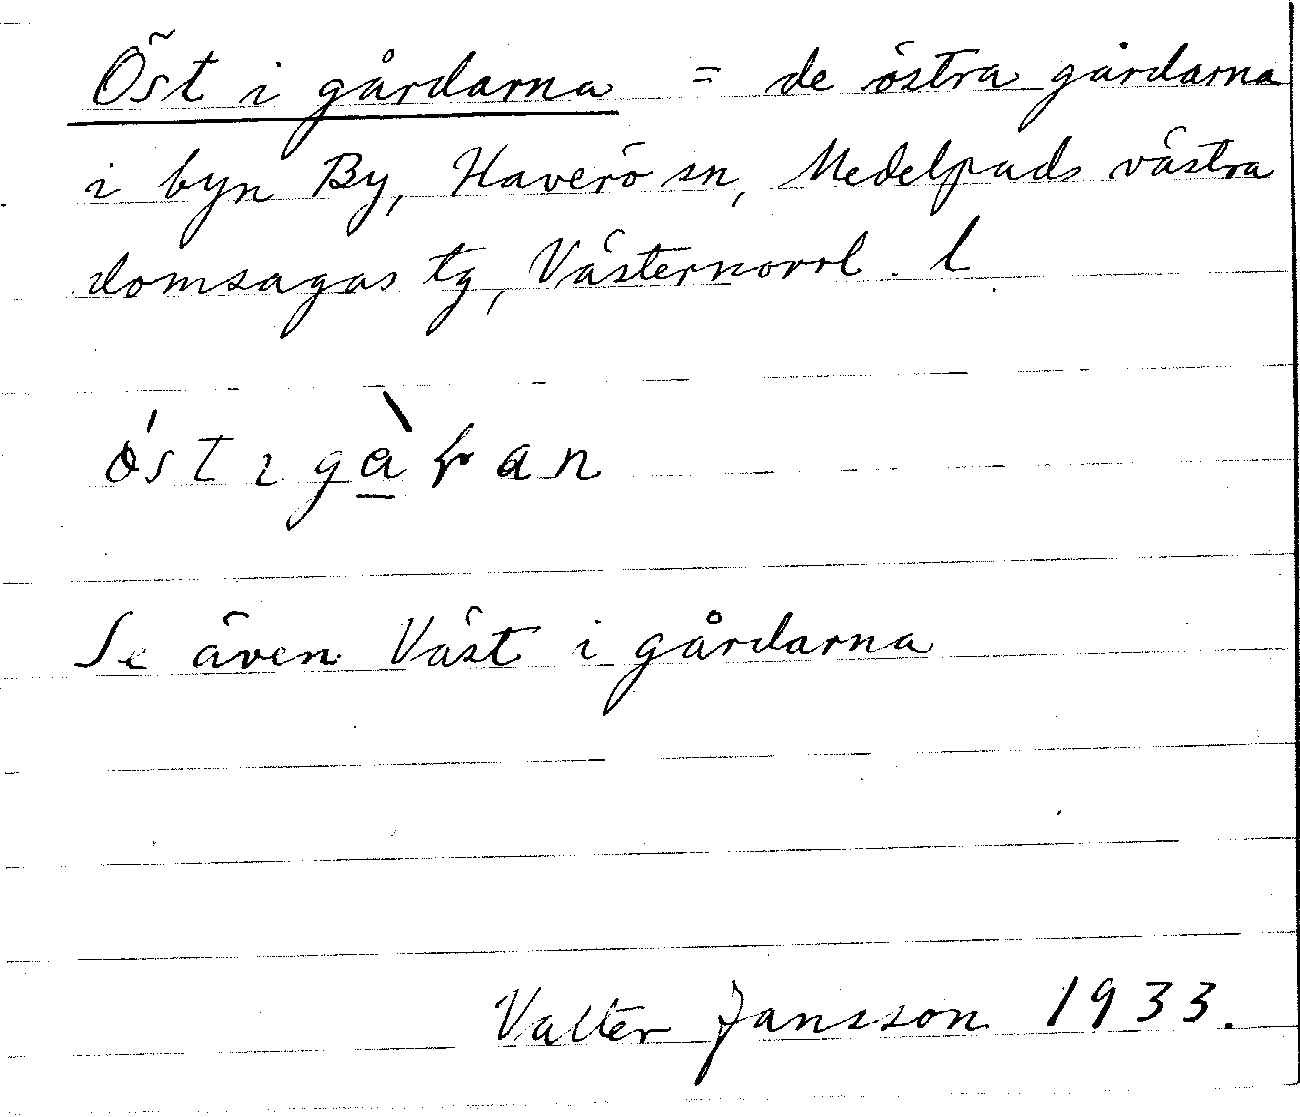 Öst i gårdarna = de östra gårdarna
i byn By, Haverö sn, Medelpads västra
domsagas tg, Västernorrl. l
Se även Väst i gårdarna
Valter Jansson 1933.